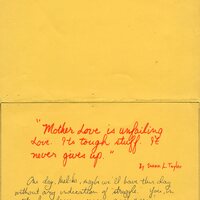 "Mother Love is unfailing
Love. Its tough stuff. It
never gives up."
By Susan L. Taylor
One day, Mable, maybe we'll have this day
without any indication of struggle. You, in